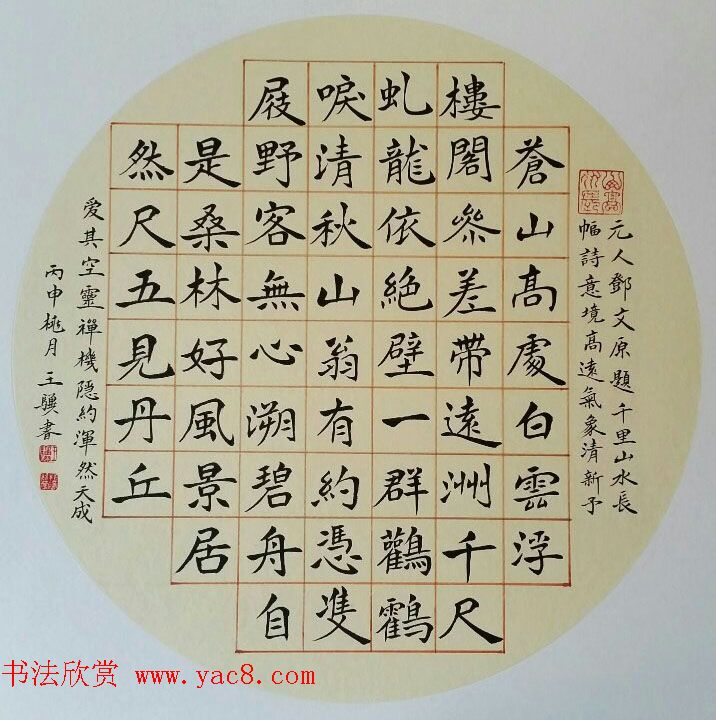 元人鄧文原題千里山水長
幅詩意境髙遠氣象清新予
蒼山髙處白雲浮
樓閣叅差帶遠洲千尺
虬龍依絕壁一群鸛鶴
唳清秋山翁有約憑雙
屐野客無心溯碧舟自
是桑林好風景居
然尺五見丹丘
爱其空靈禪機隱約渾然天成
丙申桃月王驥書
书法欣赏 www.yac8.com